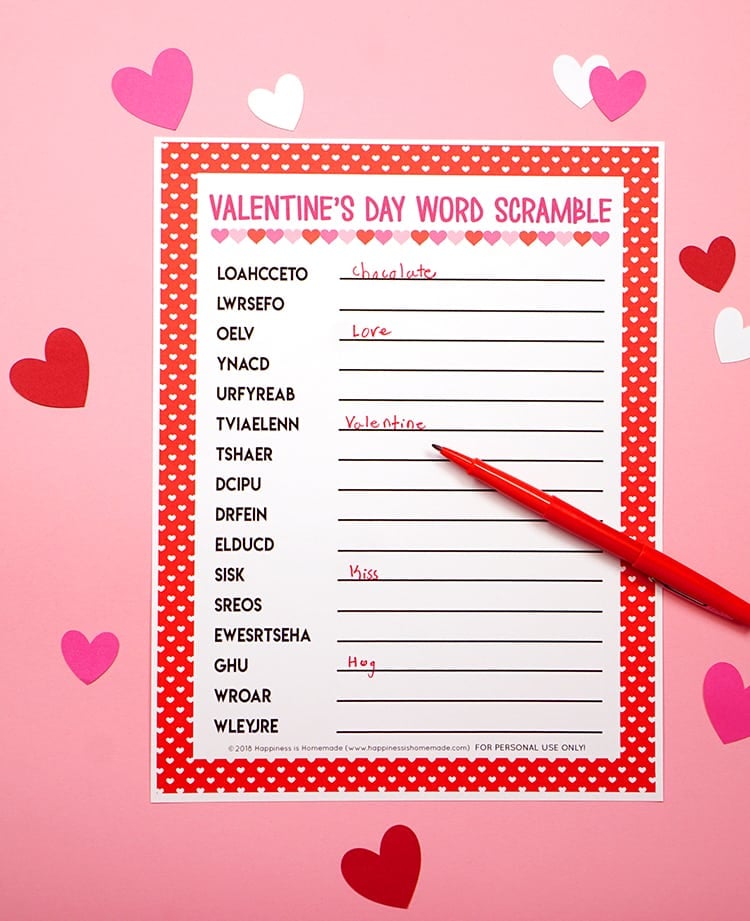 VALENTINE'S DAY WORD SCRAMBLE
LOAHCCETO chocolate
LWRSEFO
OELV Love
YNACD
URFYREAB
TVIAELENN Valentine
TSHAER
DCIPU
DRFEIN
ELDUCD
SISK Kiss
SREOS
EWESRTSEHA
GHU Hug
WROAR
WLEYJRE
©2018 Happiness is Homemade (www.happinessishomemade.com) FOR PERSONAL USE ONLY!